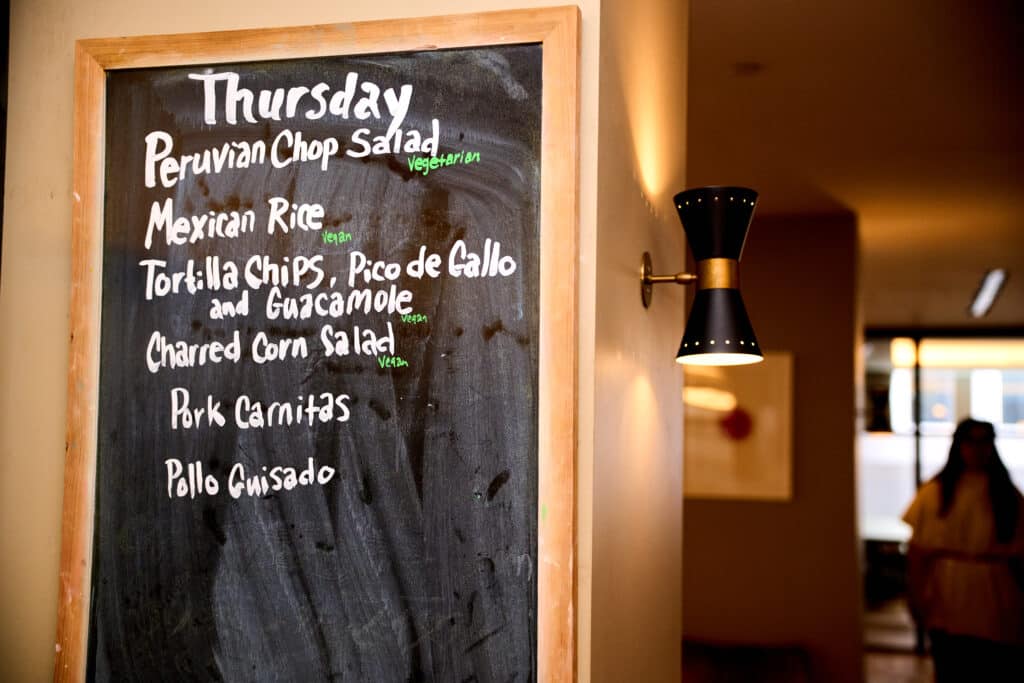 Thursday
Peruvian Chop Salad
Vegetarian
Mexican Rice
Vegan
Tortilla Chips, Pico de Gallo
and Guacamole
Vegan
Charred Corn Salad
Vegan
Pork Carnitas
Pollo Guisado